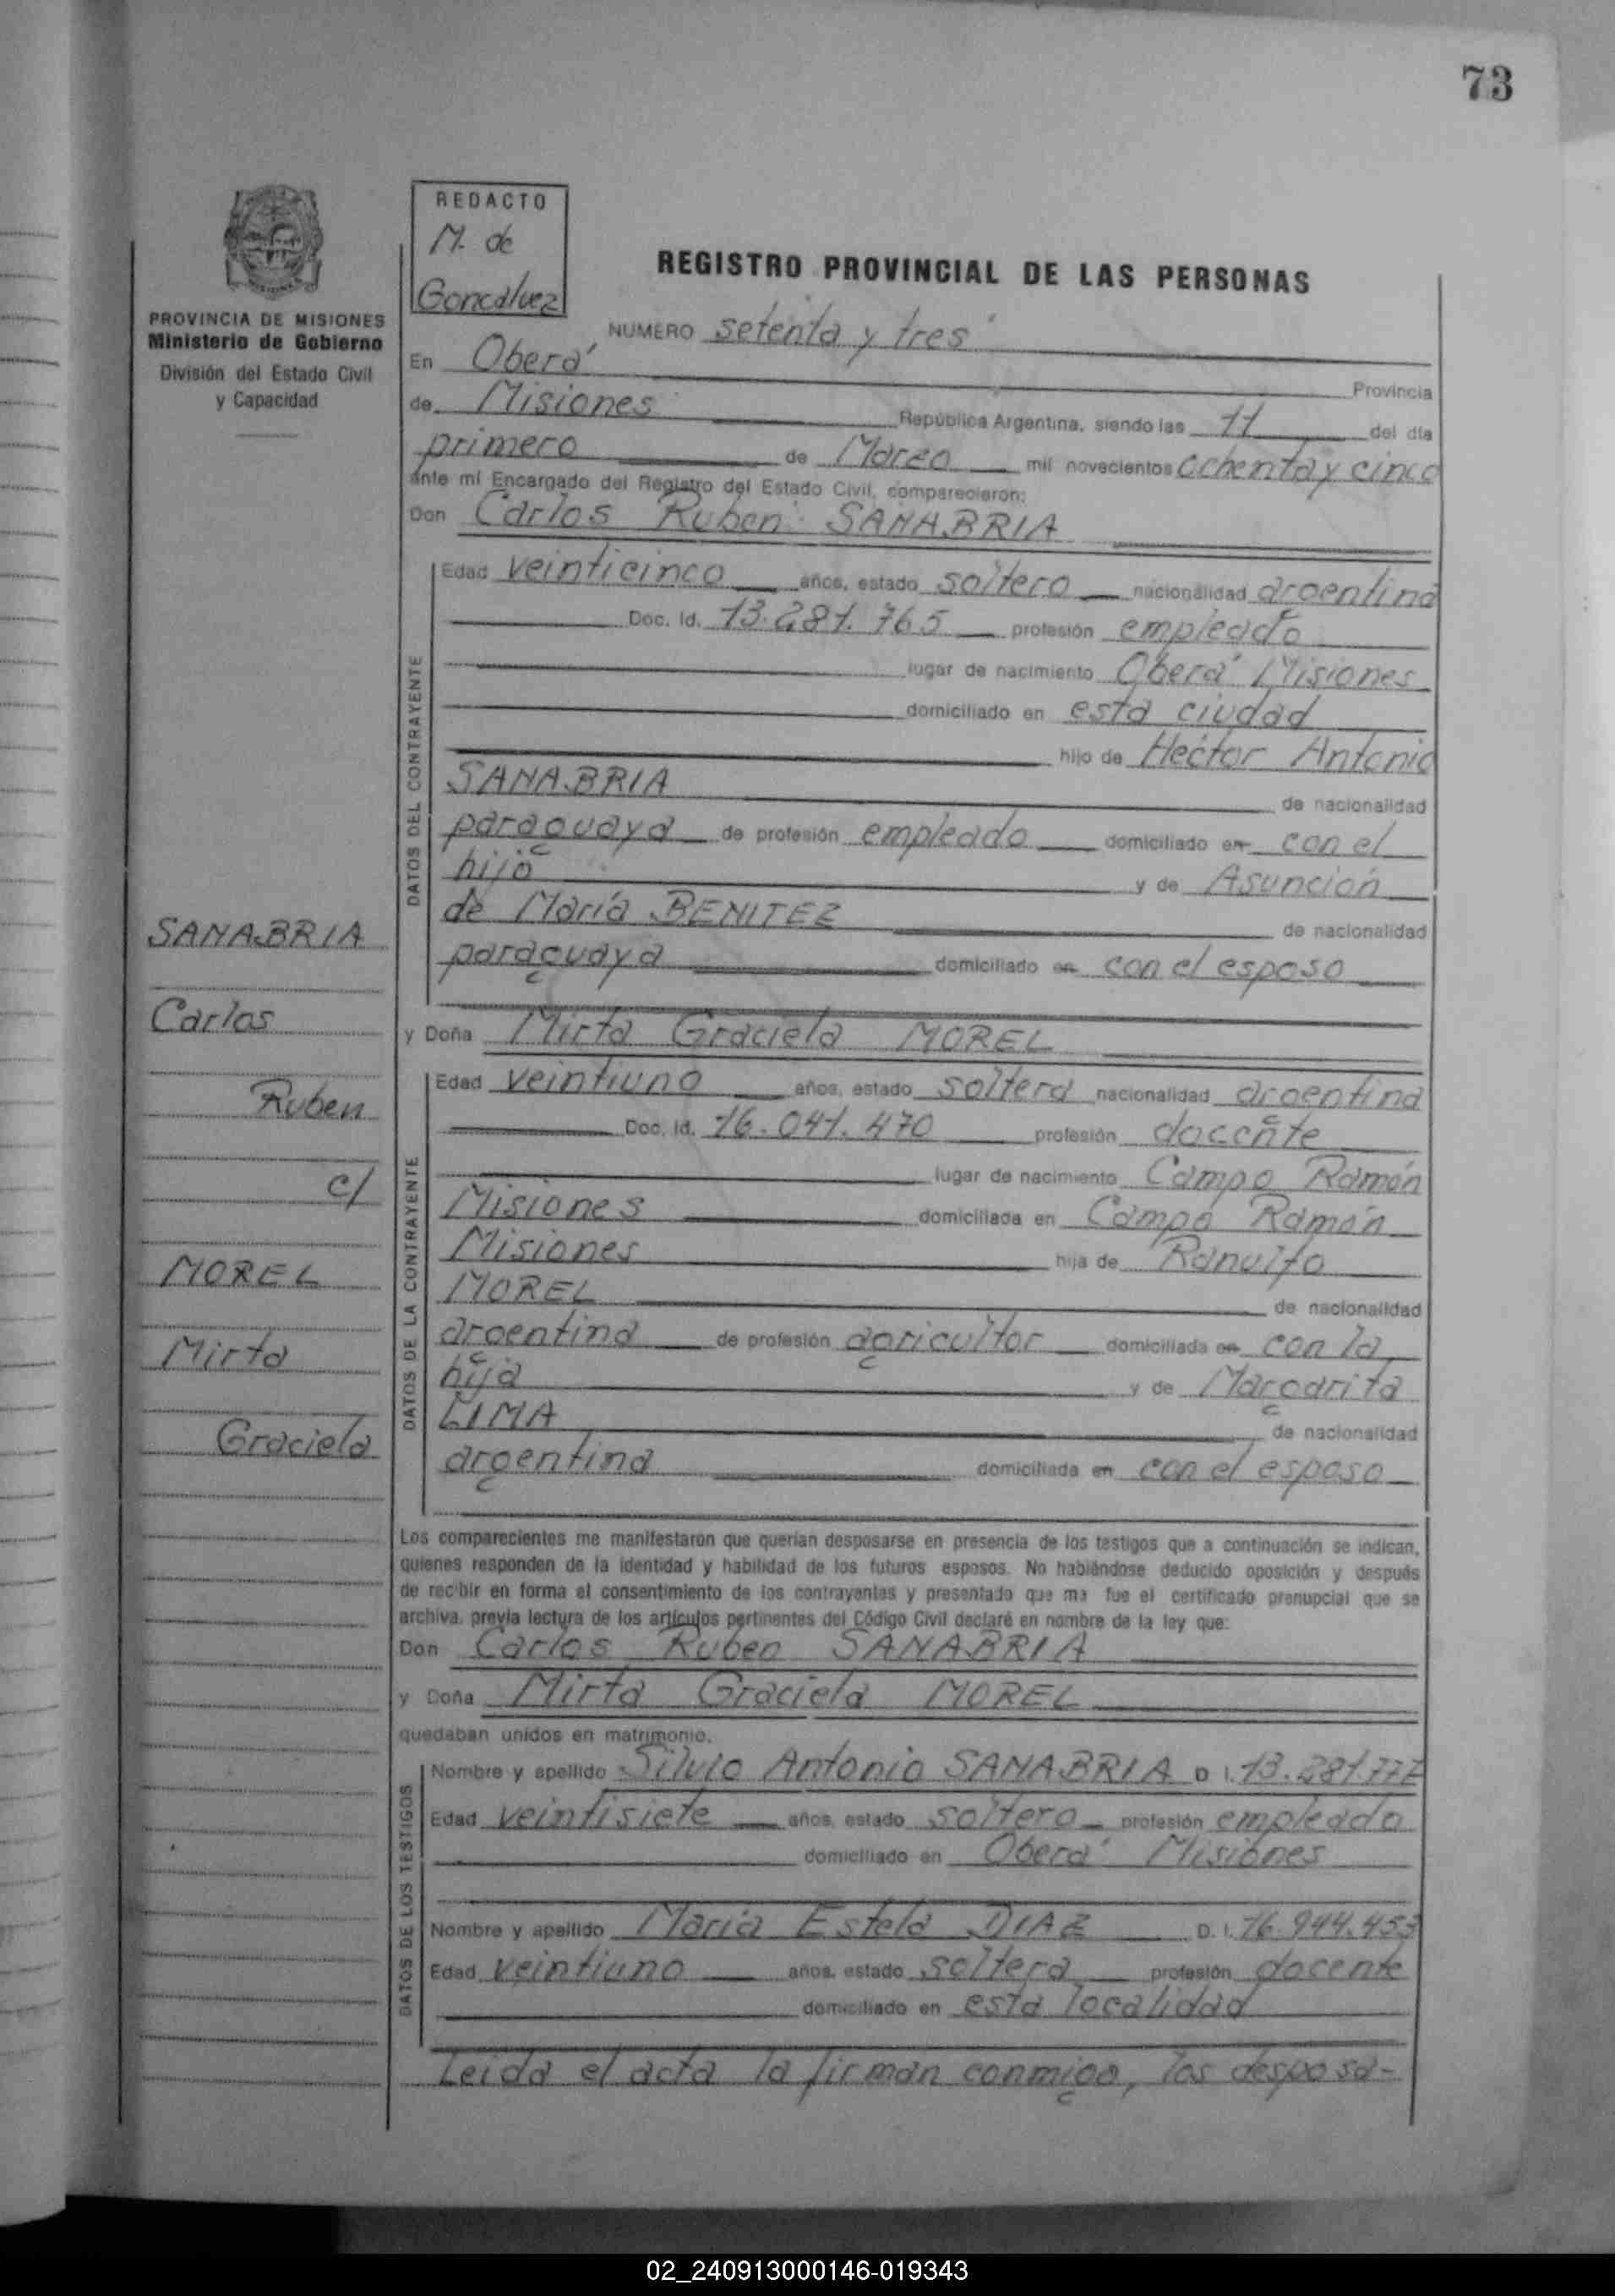 73
REDACTO
M. de
Goncalvez
PROVINCIA DE MISIONES
Ministerio de Gobierno
División del Estado Civil
y Capacidad
REGISTRO PROVINCIAL DE LAS PERSONAS
NUMERO setenta y tres
En Oberá Provincia
de Misiones República Argentina, siendo las 11 del día
primero de Marzo mil novecientos ochenta y cinco
ante mí Encargado del Registro del Estado Civil, comparecieron:
Don Carlos Ruben SANABRIA
DATOS DEL CONTRAYENTE
Edad veinticinco años, estado soltero nacionalidad argentina
Doc. Id. 13.281.765 profesión empleado
lugar de nacimiento Oberá Misiones
domiciliado en esta ciudad
hijo de Héctor Antonio
SANABRIA de nacionalidad
paraguaya de profesión empleado domiciliado en con el
hijo y de Asunción
de María BENITEZ de nacionalidad
paraguaya domiciliado en con el esposo
y Doña Mirta Graciela MOREL
DATOS DE LA CONTRAYENTE
Edad veintiuno años, estado soltera nacionalidad argentina
Doc. Id. 16.041.470 profesión docente
lugar de nacimiento Campo Ramón
Misiones domiciliada en Campo Ramón
Misiones hija de Ranulfo
MOREL de nacionalidad
argentina de profesión agricultor domiciliada en con la
hija y de Margarita
LIMA de nacionalidad
argentina domiciliada en con el esposo
SANABRIA
Carlos
Ruben
c/
MOREL
Mirta
Graciela
Los comparecientes me manifestaron que querían desposarse en presencia de los testigos que a continuación se indican,
quienes responden de la identidad y habilidad de los futuros esposos. No habiéndose deducido oposición y después
de recibir en forma el consentimiento de los contrayentes y presentado que me fue el certificado prenupcial que se
archiva, previa lectura de los artículos pertinentes del Código Civil declaré en nombre de la ley que:
Don Carlos Ruben SANABRIA
y Doña Mirta Graciela MOREL
quedaban unidos en matrimonio.
DATOS DE LOS TESTIGOS
Nombre y apellido Silvio Antonio SANABRIA D I. 13.281.777
Edad veintisiete años, estado soltero profesión empleado
domiciliado en Oberá Misiones
Nombre y apellido María Estela DIAZ D. I. 16.944.453
Edad veintiuno años, estado soltera profesión docente
domiciliado en esta localidad
Leida el acta la firman conmigo, los desposa-
02_240913000146-019343